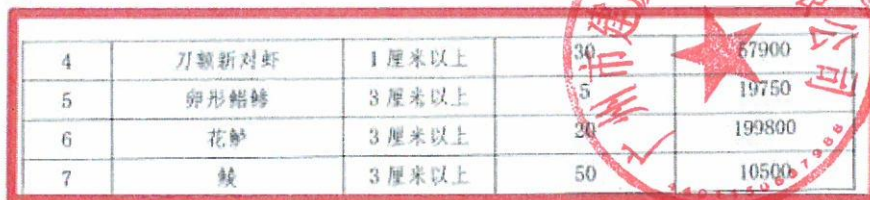 4 刀额新对虾 1厘米以上 30 67900
5 卵形鲳鲹 3厘米以上 5 19750
6 花鲈 3厘米以上 20 199800
7 鲮 3厘米以上 50 10500
广州市建
公司